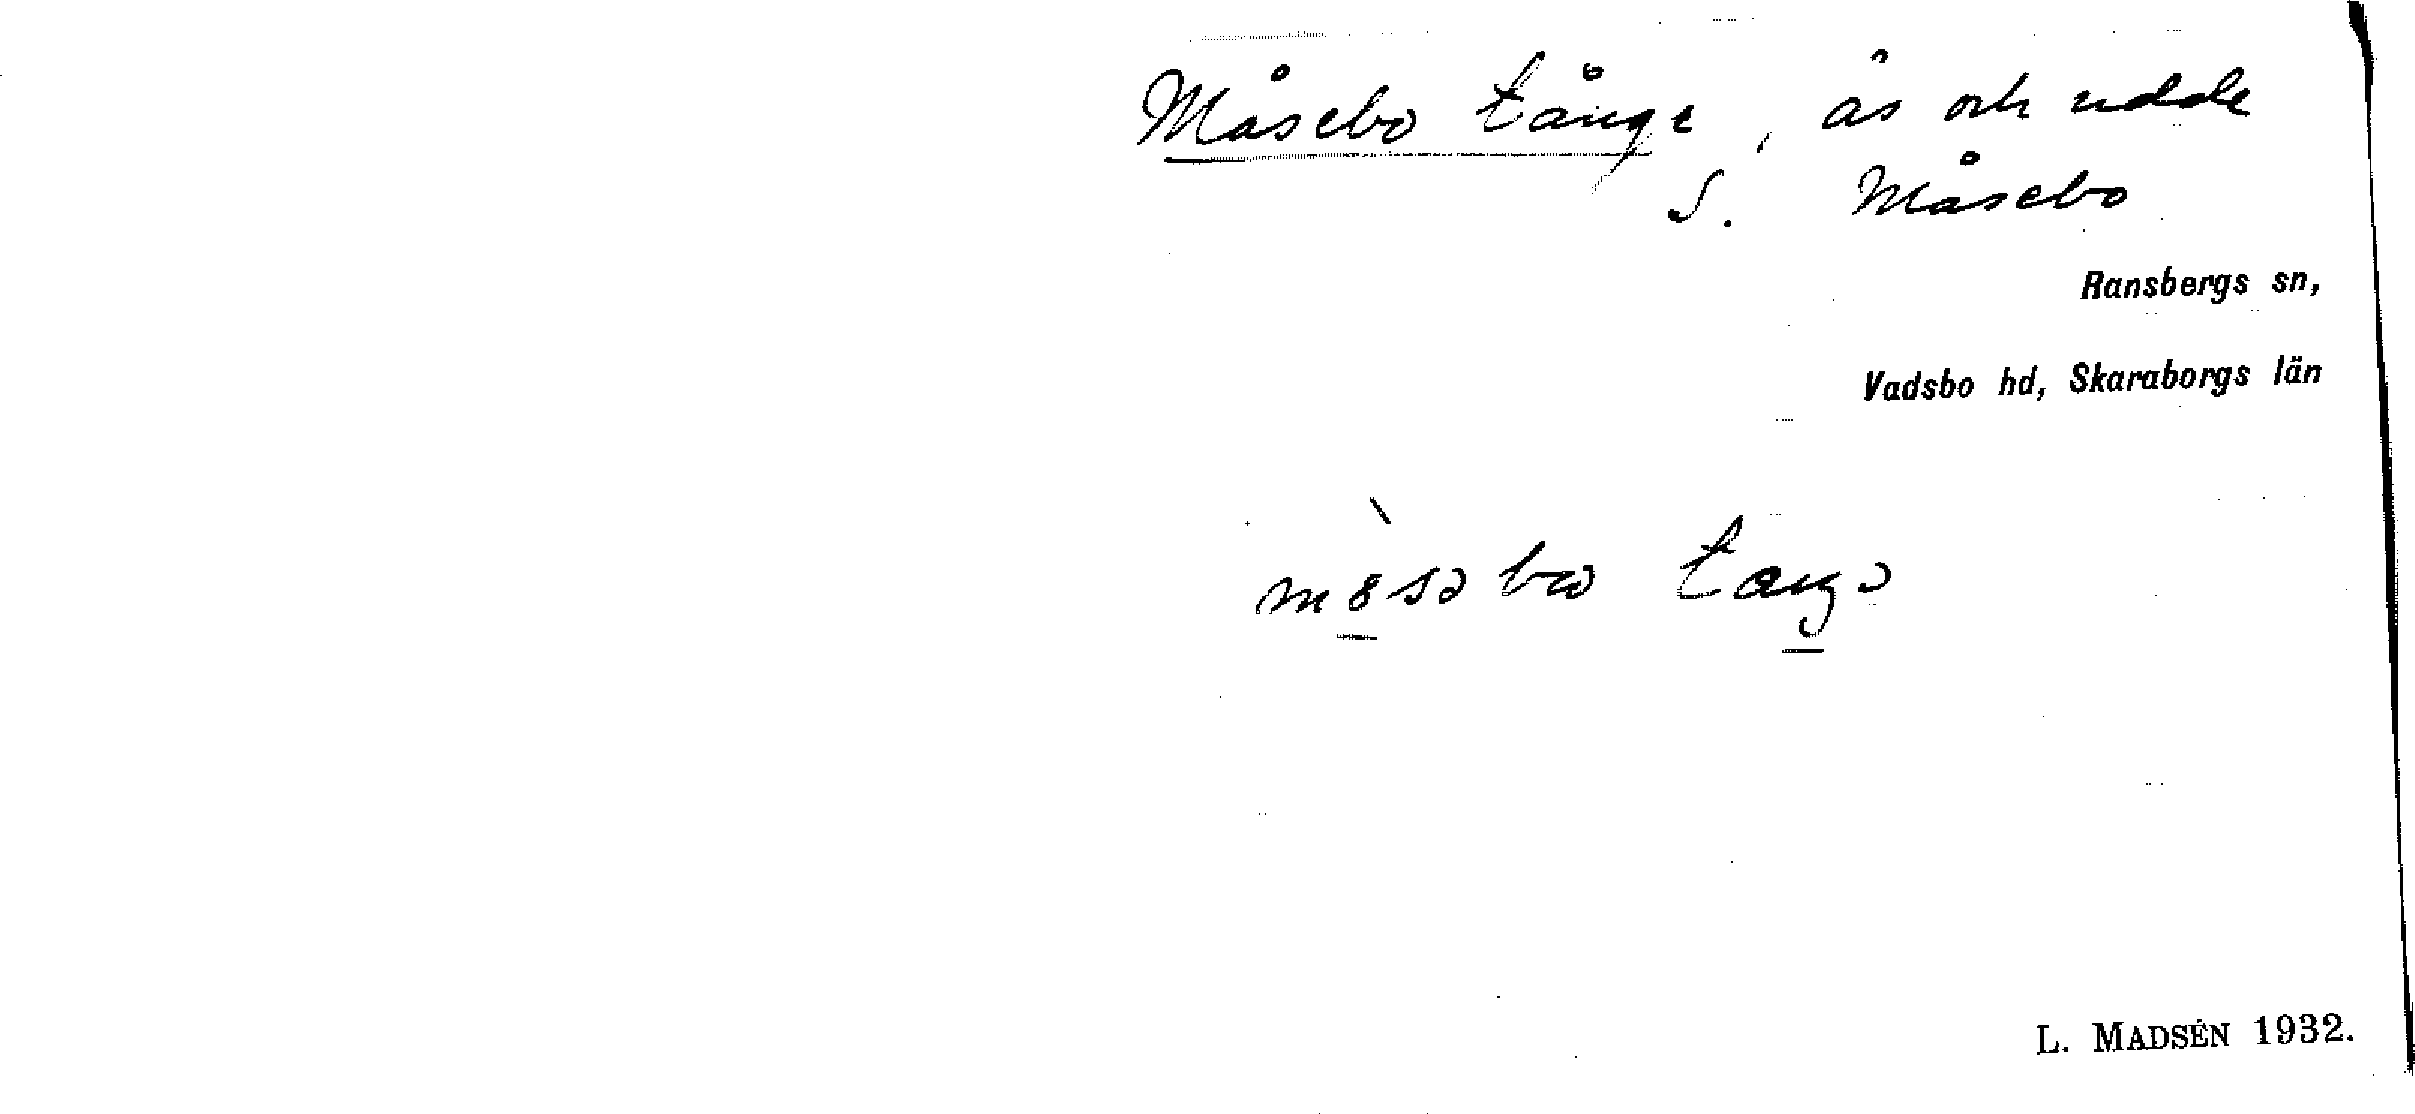 Måsebo tånge, ås och udde
S. Måsebo
Ransbergs sn,
Vadsbo hd, Skaraborgs län
L. MADSÉN 1932.